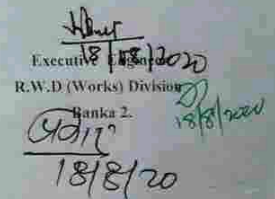 18/08/2020
Executive Engineer
R.W.D (Works) Division
Banka 2.
18/8/2020
18/8/20